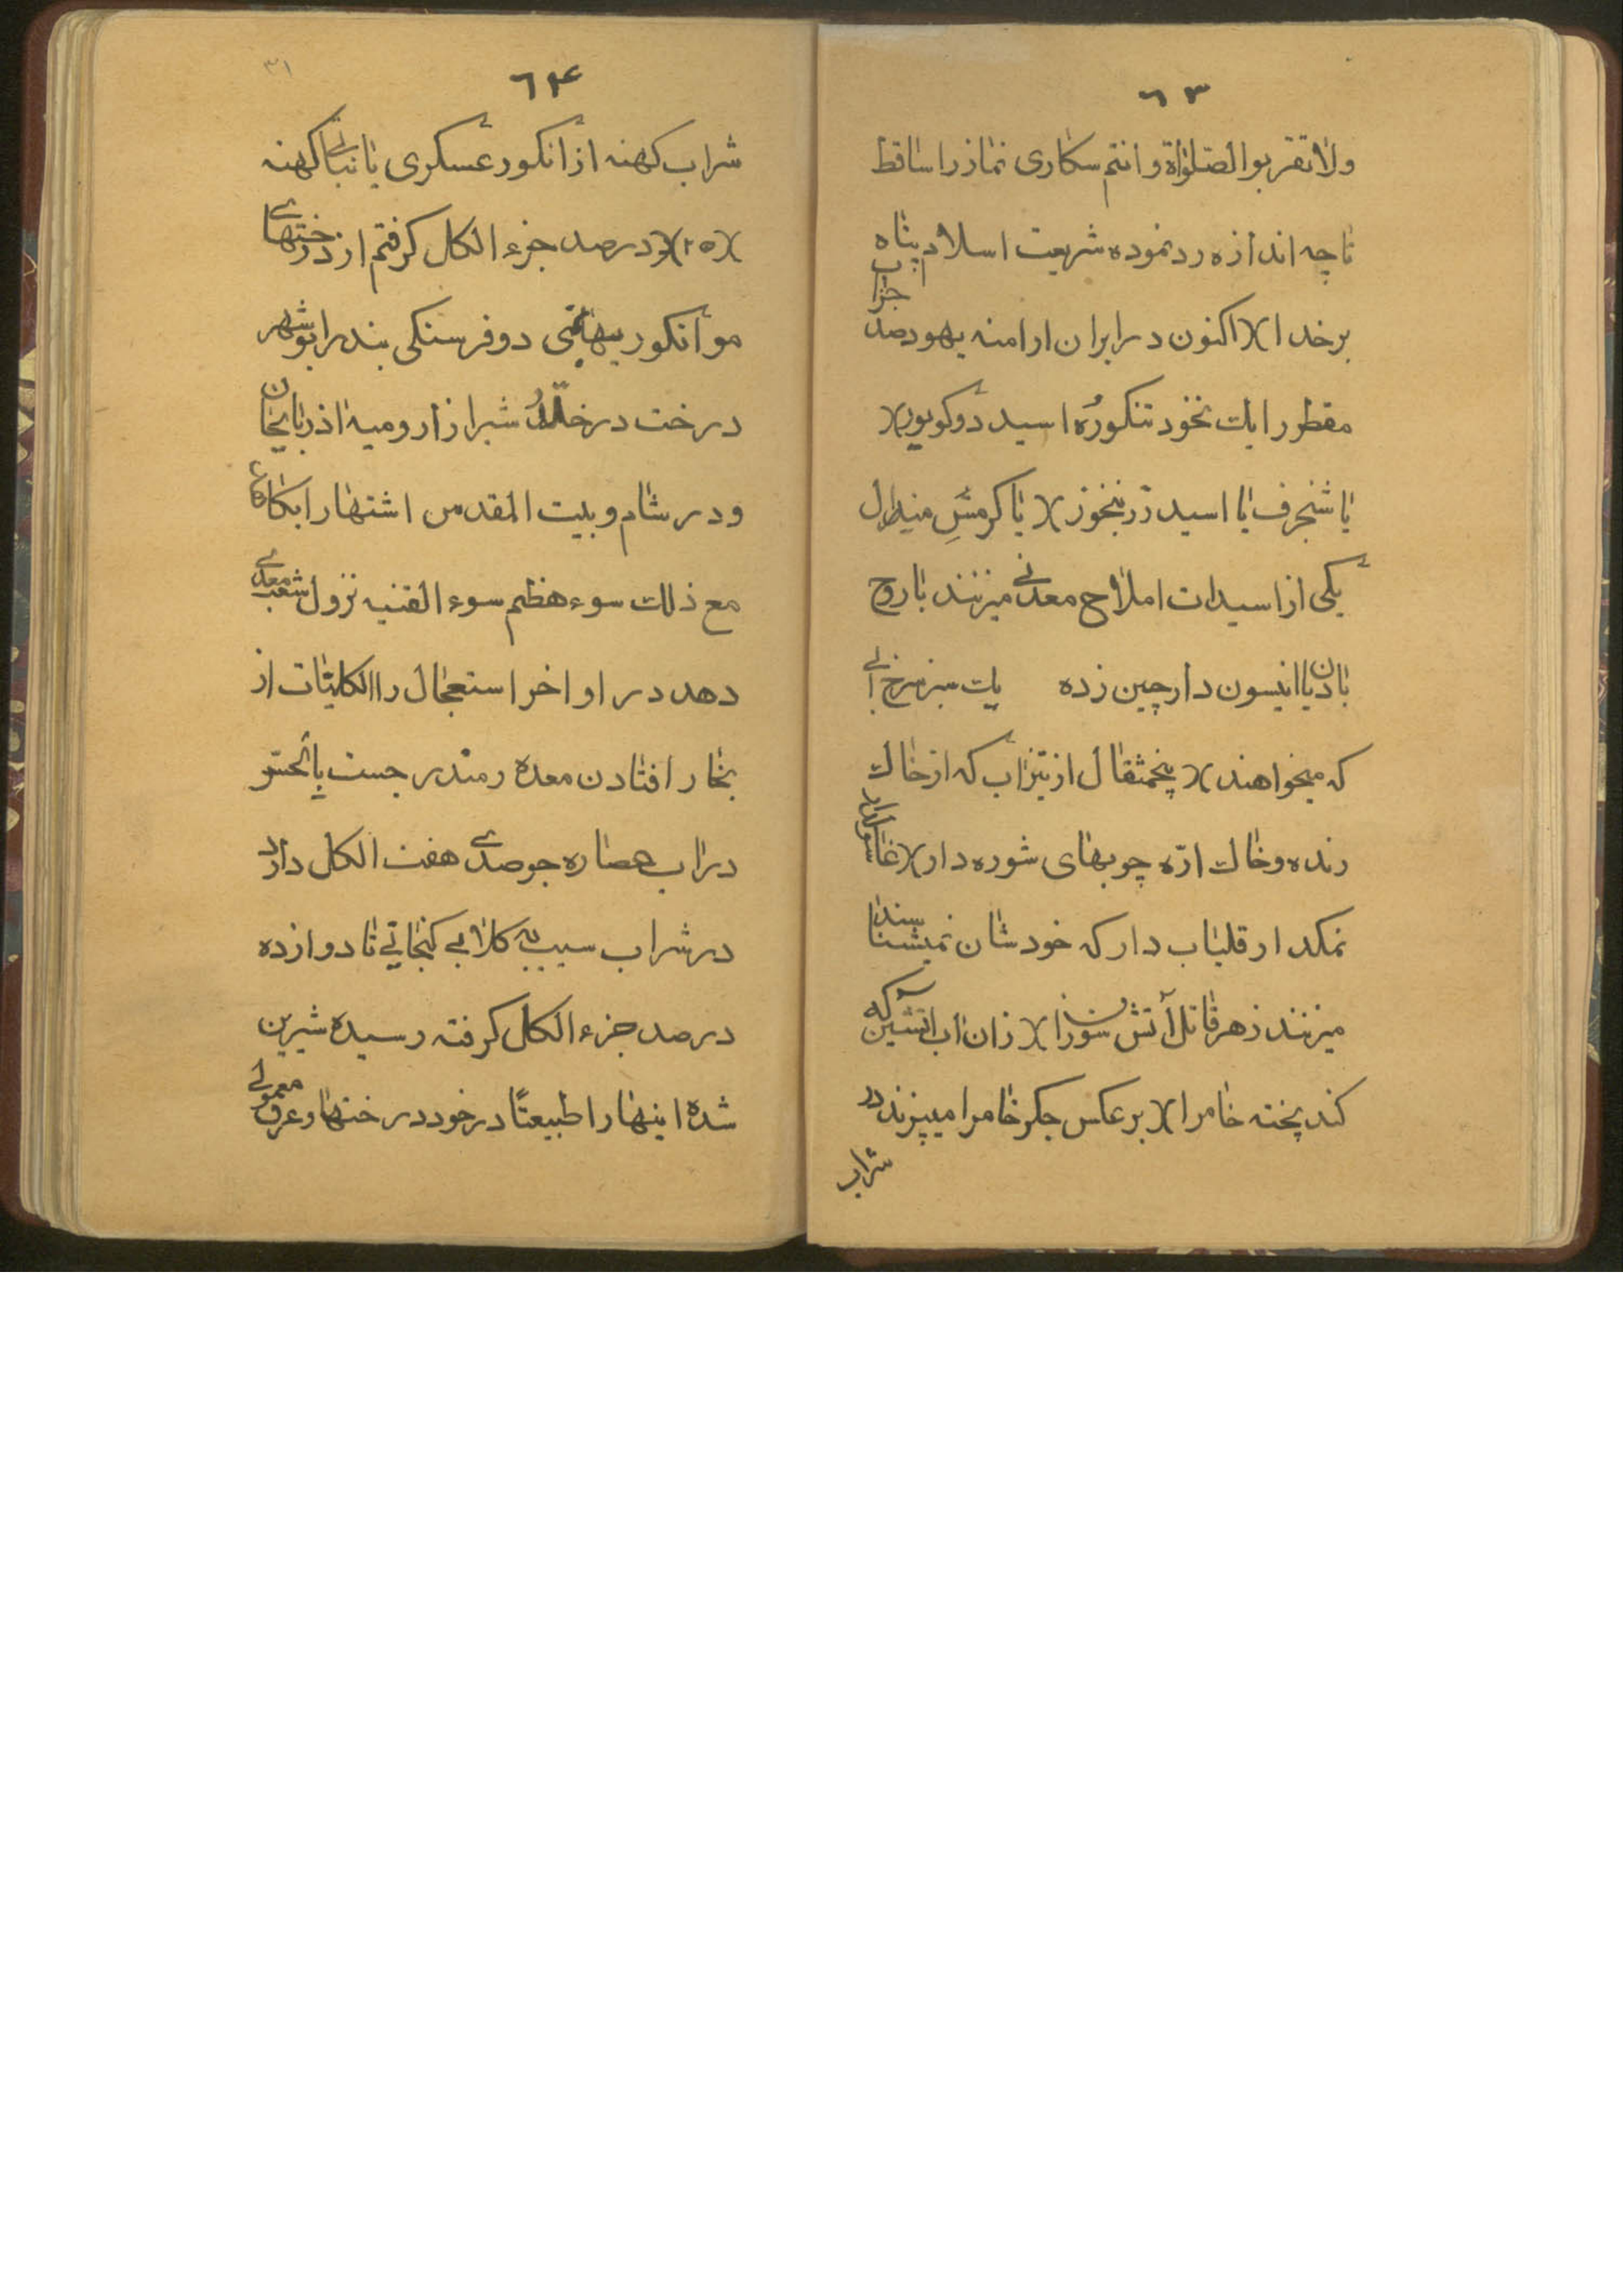 ٦٣
ولا تقربوا الصلواة و انتم سکاری نماز را ساقط
تا چه اندازه رد نموده شریعت اسلام پناه
بر خدا )( اکنون در ایران ارامنه یهود صد جزء اب
مقطر را یک نخود تنکوره اسید دوکویور )(
یا شنجرف یا اسید زرنیخوز )( یا کرمس مینرال
یکی از اسیدات املاح معدنی میزنند با روح
بادیان یا انیسون دارچین زده یک سبز سرخ ابی
که میخواهند )( پنجمثقال از تیزاب که از خاک
رنده و خاک ارّه چوبهای شوره دار )(
نمکدار قلیاب دار که خودشان نمیشناسند
میزنند زهر قاتل آتش سوزانرا )( زان اب اتشین که
کند پخته خام را )( بر عکس جکر خام را میپزند در
شراب
٦۴
۳۱
شراب کهنه از انکور عسکری یا نباتی کهنه
)( ۲۵ )( در صد جزء الکل کرفتم از درختهای
مو انکور بیهاتمی دو فرسنکی بندر ابو شهر
درخت در خلّلر شیراز ارومیه اذربایجان
و در شام و بیت المقدس اشتهارا بکاهای
مع ذلک سوء هظم سوء القنیه نزول شعب معدی
دهد در اواخر استعجال را الکلیتات از
بخار افتادن معده رمتدر جست
در اب عصاره جو صدی هفت الکل دارد
در شراب سیب به کلابی کنجاتی تا دوازده
در صد جزء الکل کرفته رسیده شیرین
شده اینها را طبیعتًا در خود درختها و عرق معمولی